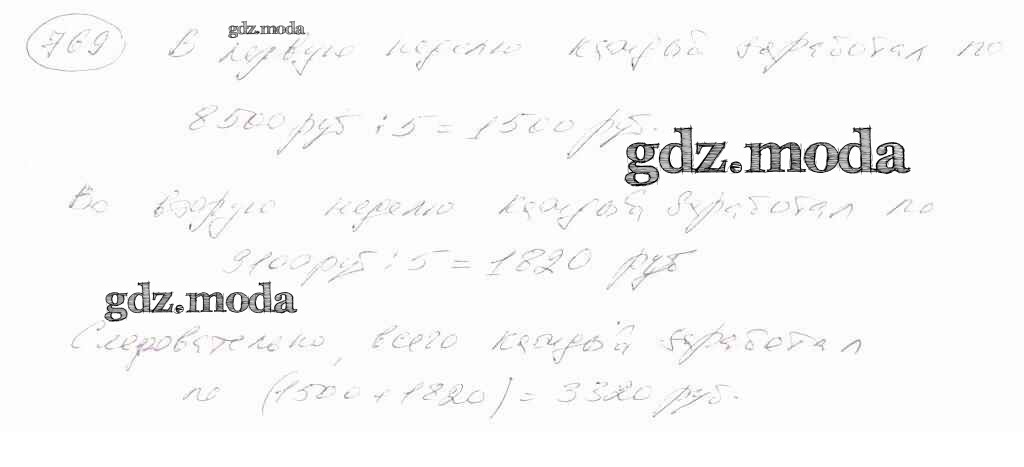 769 gdz.moda
В первую неделю каждый заработал по
8500 руб : 5 = 1500 руб.
gdz.moda
Во вторую неделю каждый заработал по
9100 руб : 5 = 1820 руб
gdz.moda
Следовательно, всего каждый заработал
по (1500 + 1820) = 3320 руб.